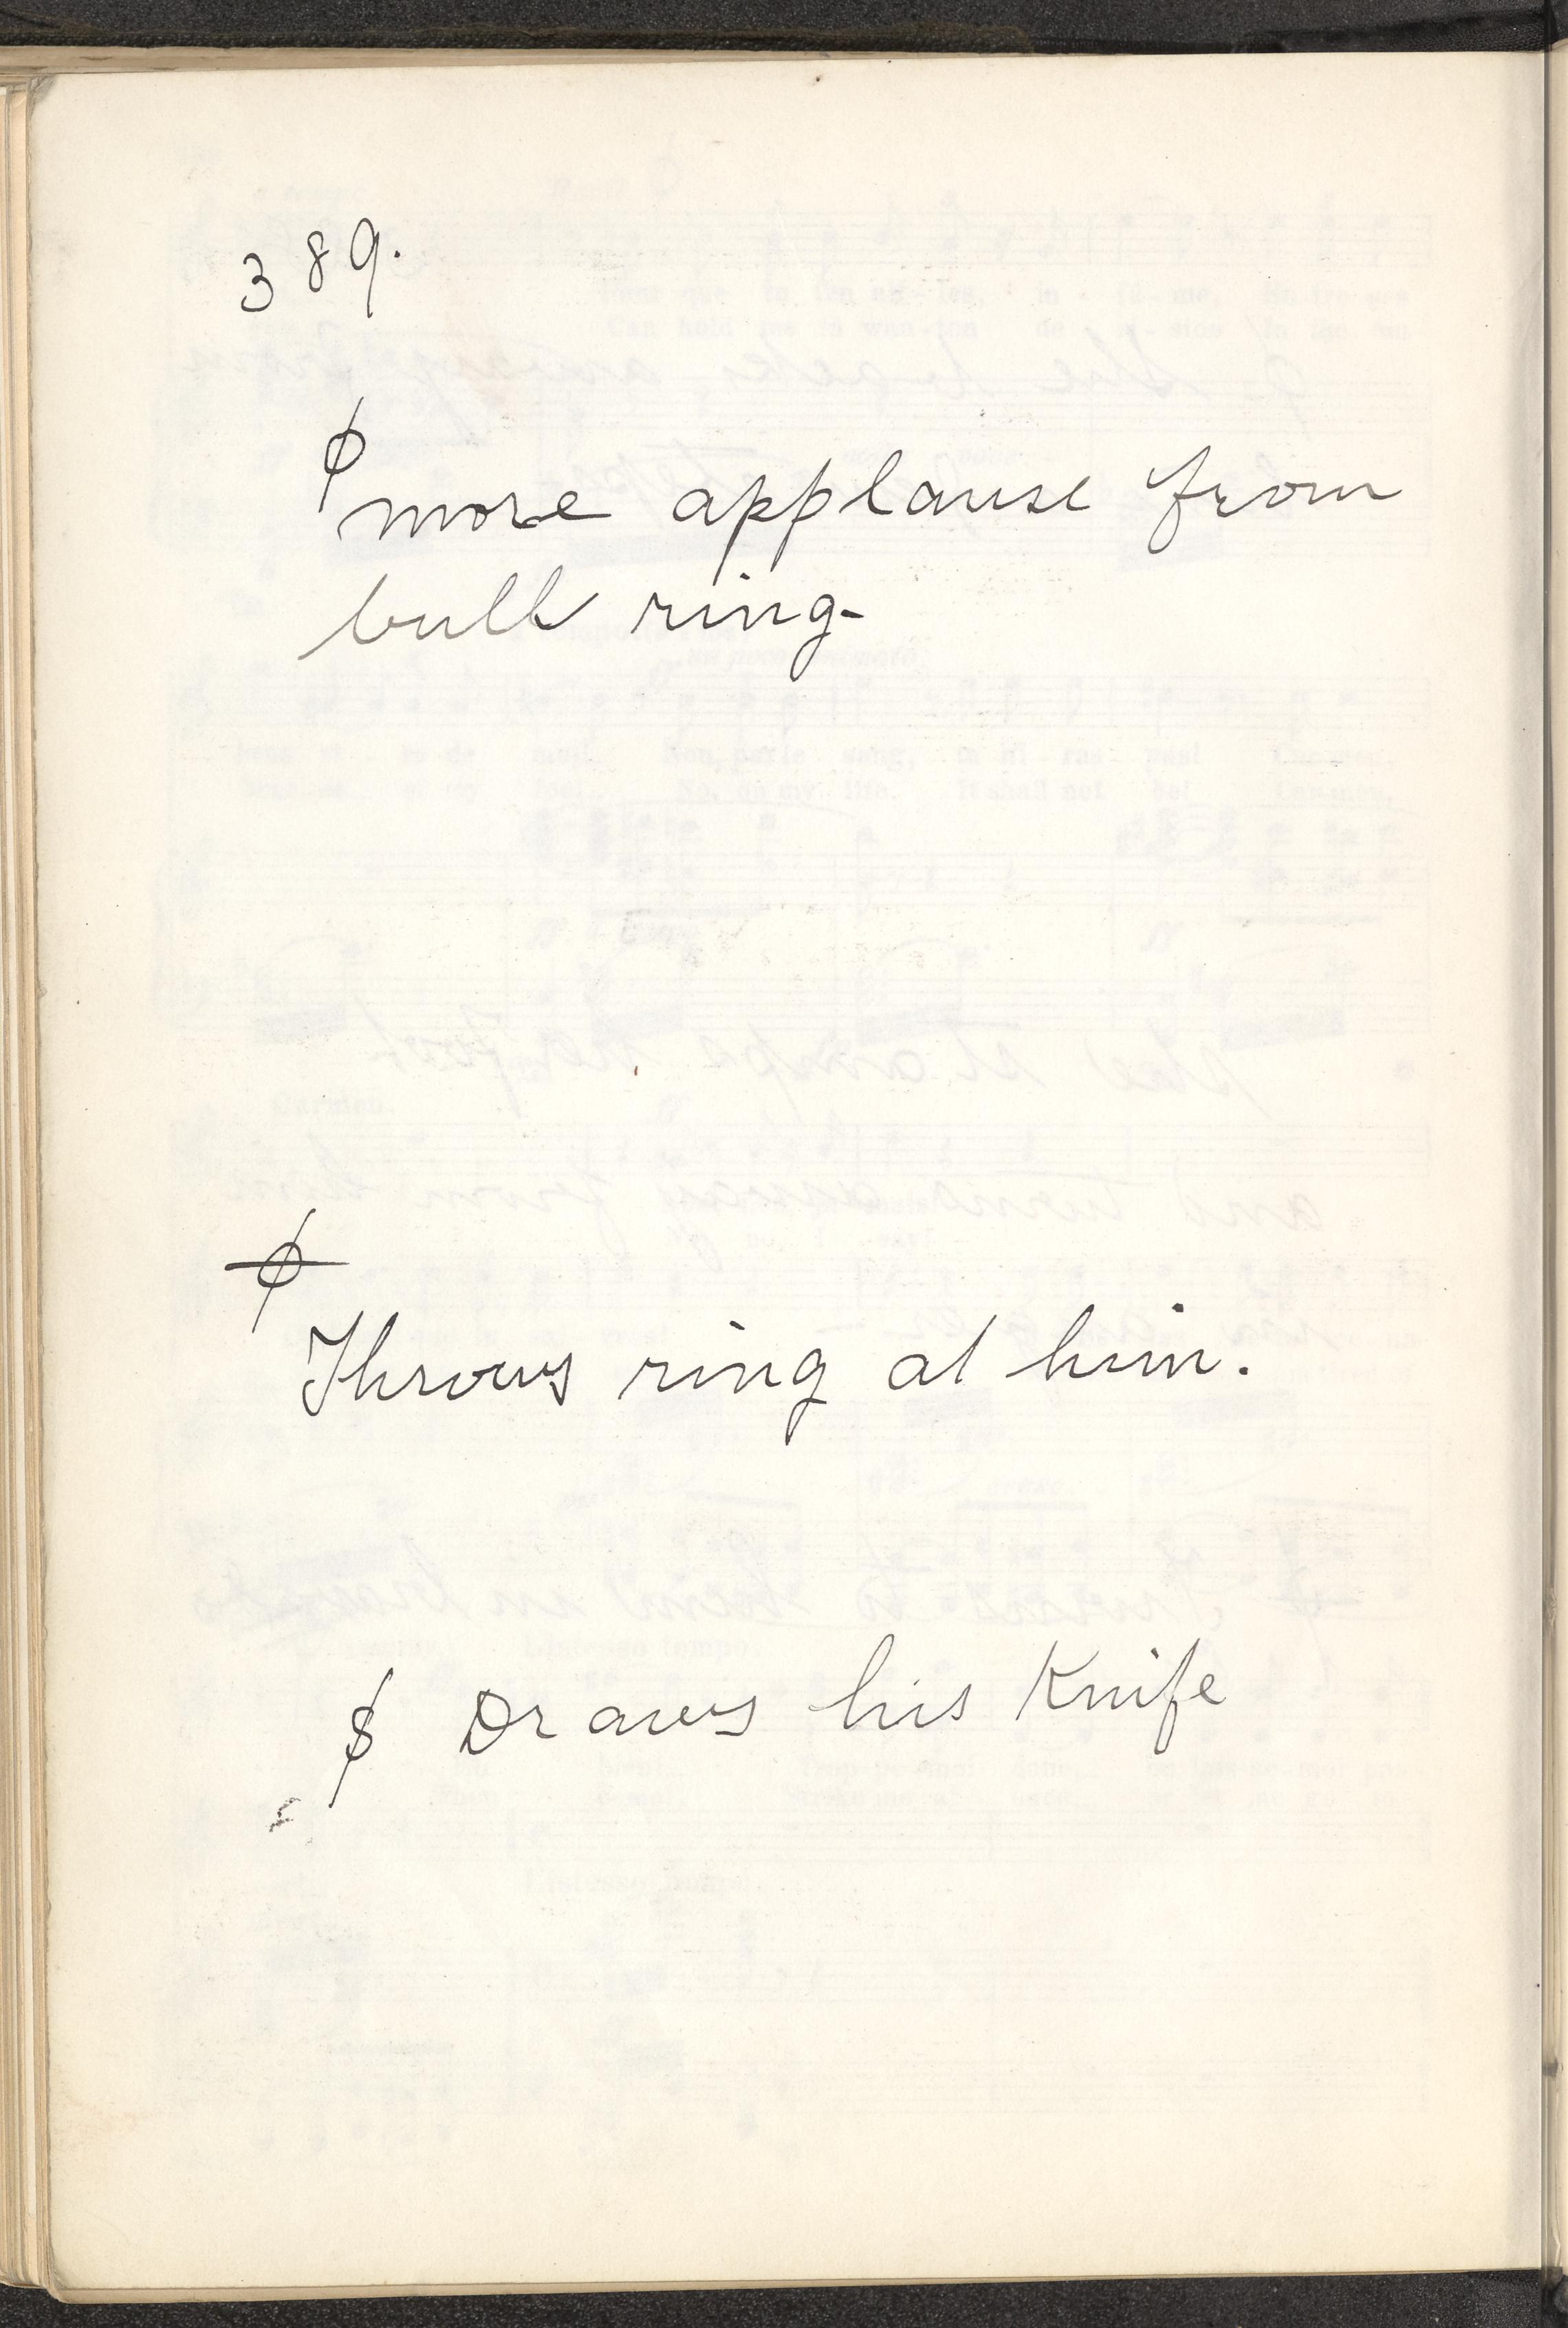 389.
ϕ
more applause from
bull ring-
ϕ
Throws ring at him.
$ Draws his Knife